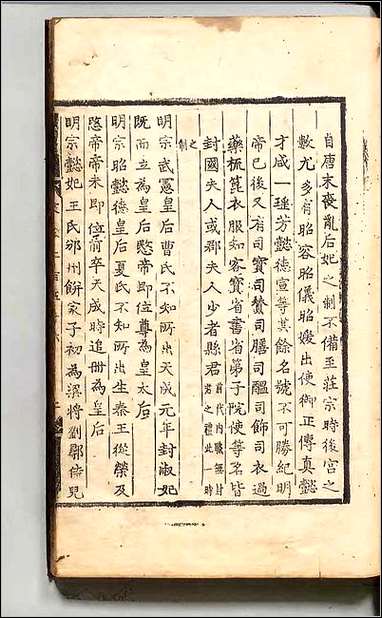 自唐末喪亂后妃之制不備至莊宗時後宮之
數尤多有昭容昭儀昭媛出使御正侍真懿
才咸一瑶芳懿德宣等其餘名號不可勝紀明
帝已後又有司寶司贊司膳司醞司飾司衣過
藥梳篦衣服知客寶省書省弟子院使等名皆
封國夫人或郡夫人少者縣君前代內職無封
君之禮此一時
之
制
明宗武憲皇后曹氏不知所出天成元年封淑妃
既而立為皇后愍帝即位尊為皇太后
明宗昭懿德皇后夏氏不知所出生秦王從榮及
愍帝帝未即位前卒天成時追冊為皇后
明宗懿妃王氏邠州餅家子初為梁將劉鄩侍兒